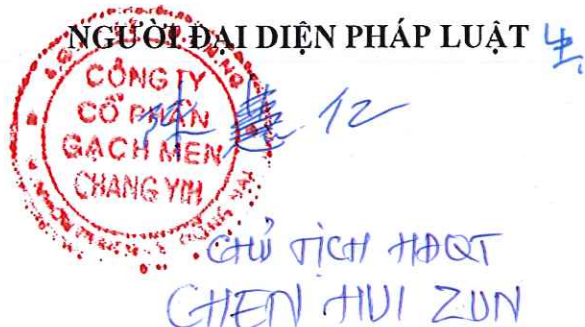 NGƯỜI ĐẠI DIỆN PHÁP LUẬT
CÔNG TY
CỔ PHẦN
GẠCH MEN
CHANG YIH
陈 慧 仁
CHỦ TỊCH HĐQT
CHEN HUI ZUN